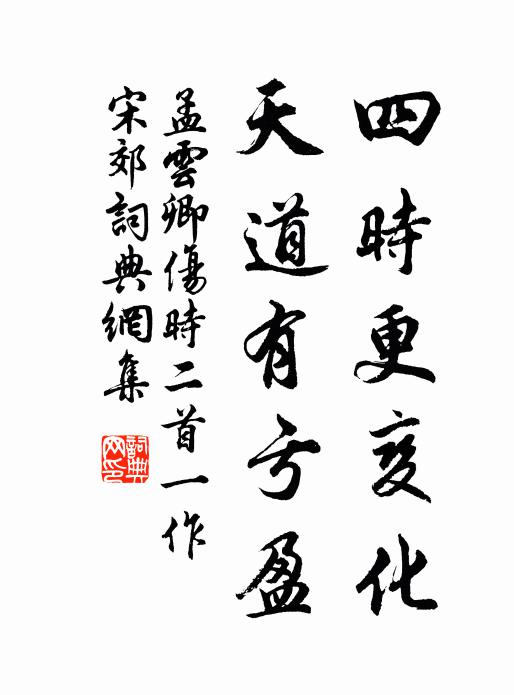 四時更変化
天道有亏盈
孟雲卿傷時二首一作
宋郊詞典網集
詞典网印